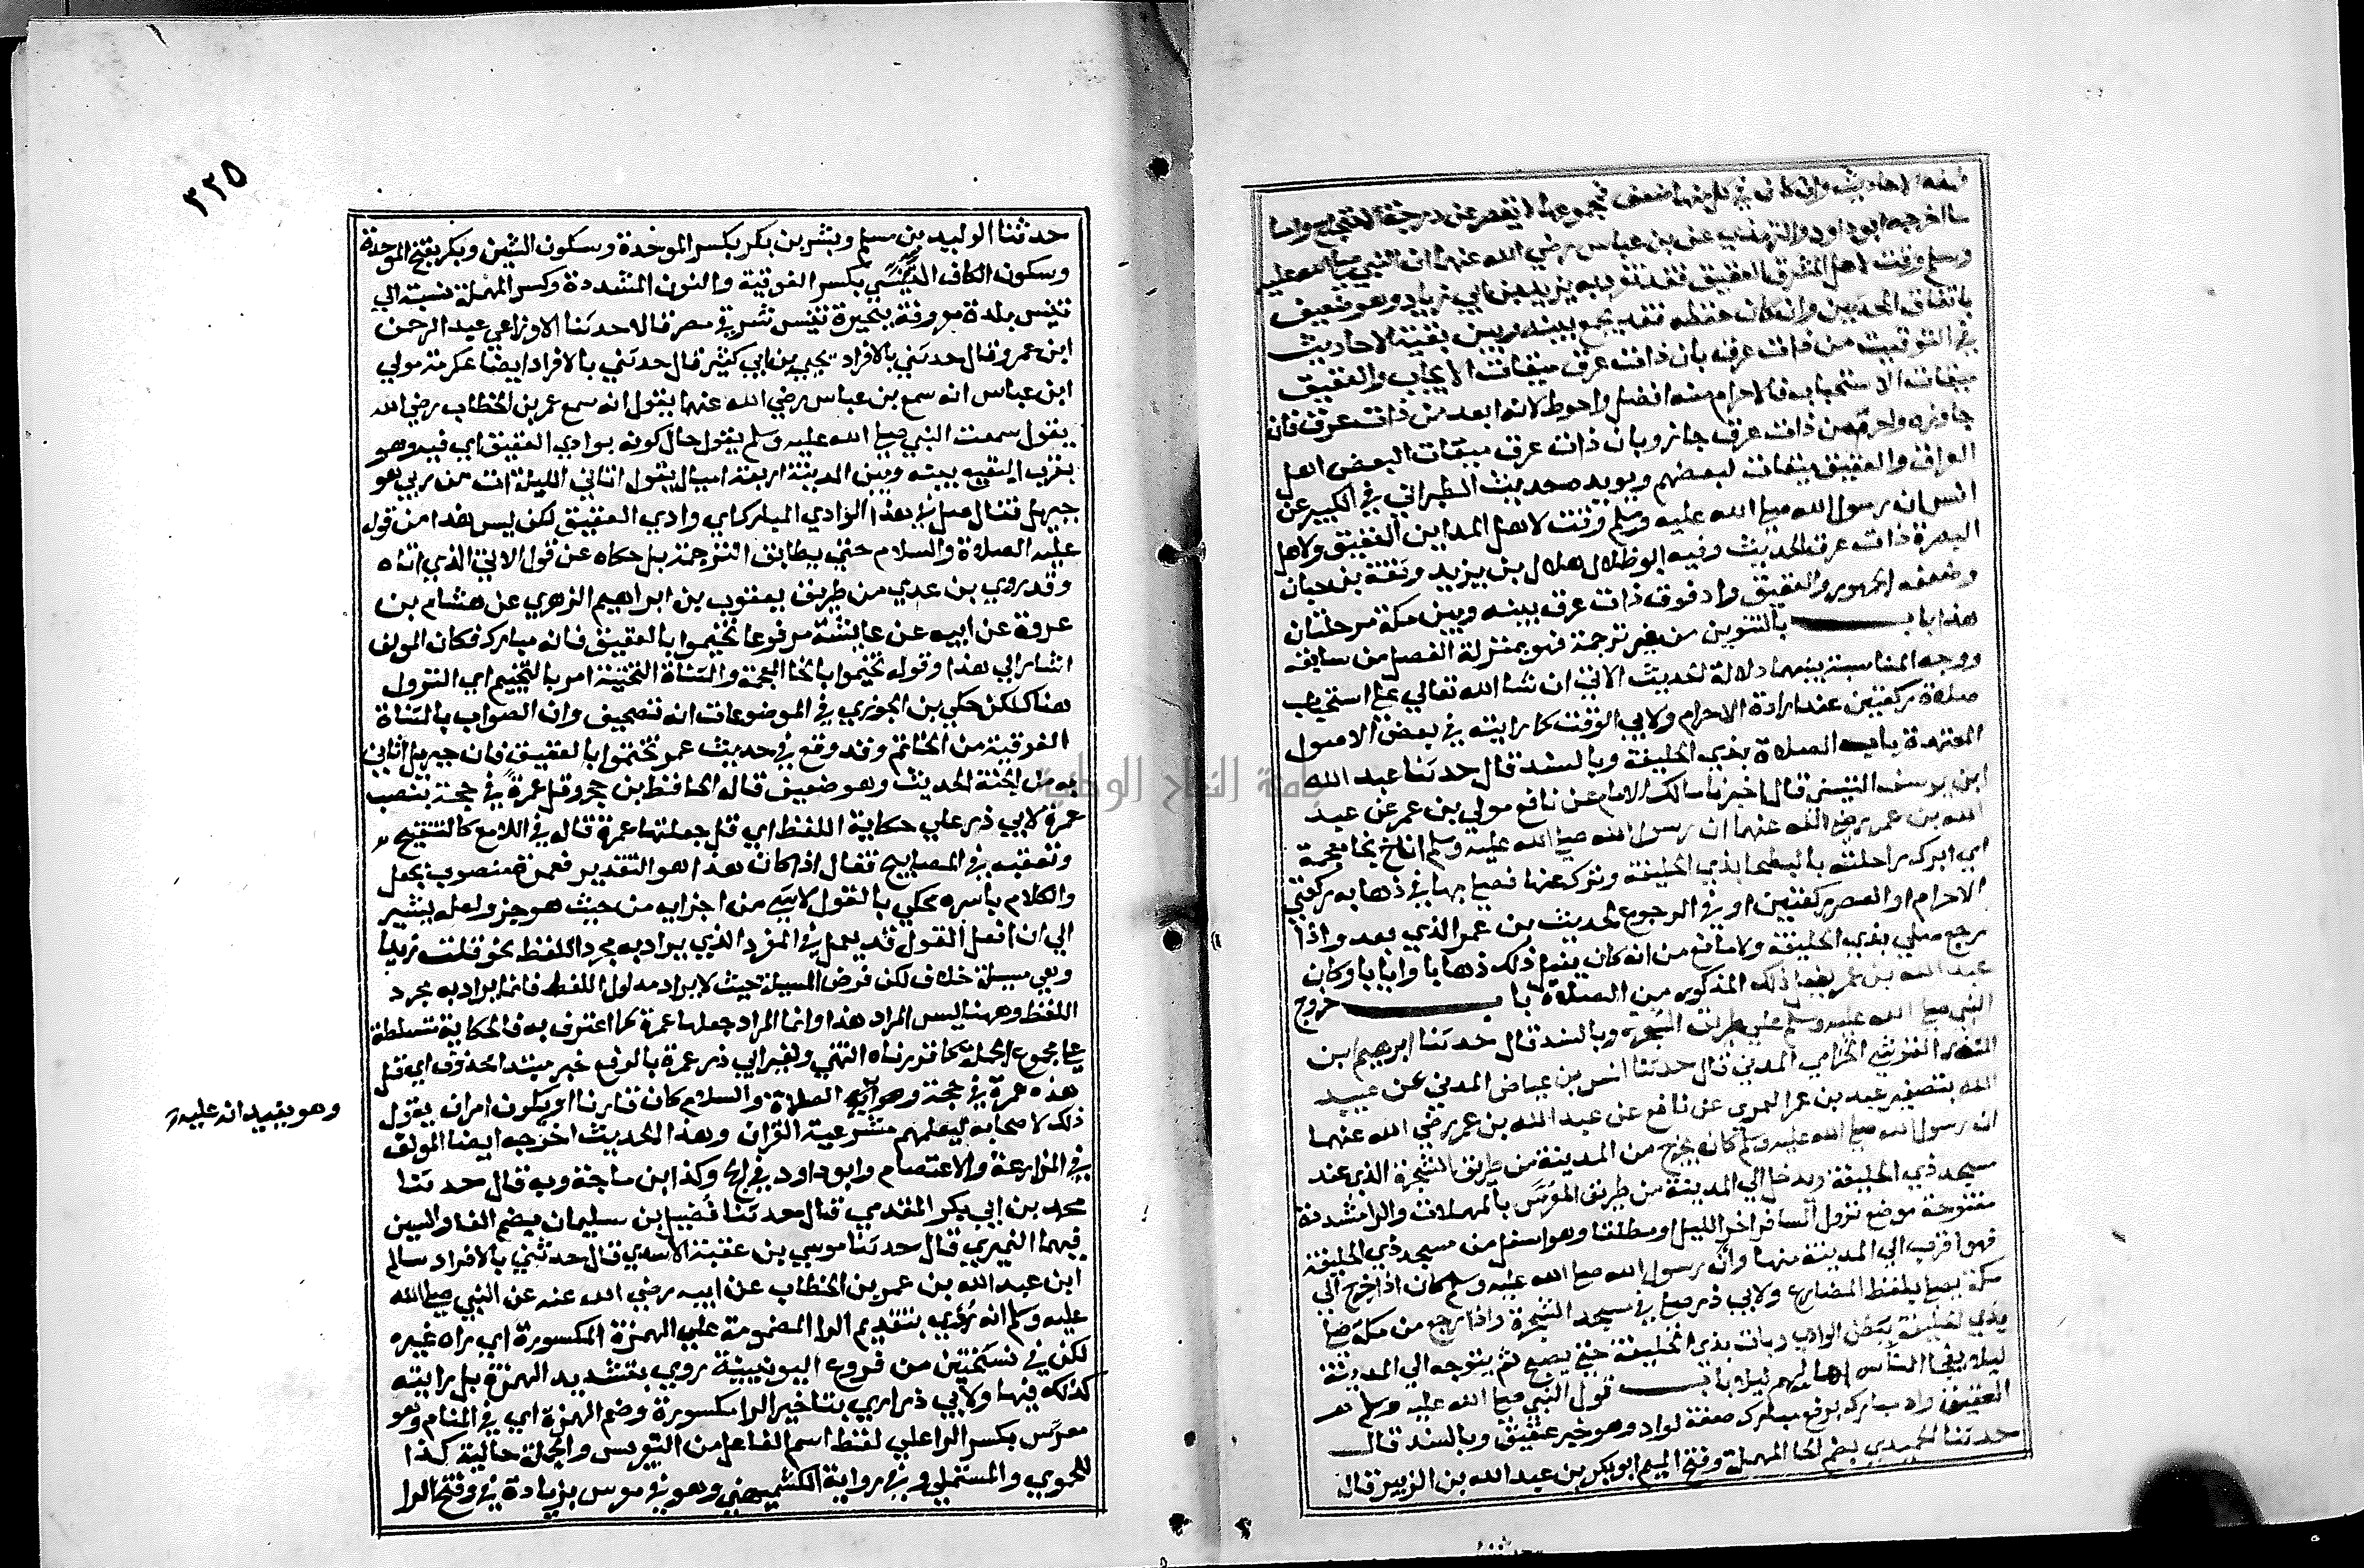 فهذه احاديث وان كان في كل منها ضعف فمجموعها لا يقصر عن درجة الاحتجاج واما
ما اخرجه ابو داود والترمذي عن بن عباس رضي الله عنهما ان النبي صلى الله عليه
وسلم وقت لاهل المشرق العقيق فقد تفرد به يزيد بن ابي زياد وهو ضعيف
باتفاق المحدثين وان كان حفظه فقد يجمع بينه وبين بقية الاحاديث
في التوقيت من ذات عرق بان ذات عرق ميقات الايجاب والعقيق
ميقات الاستحباب فالاحرام منه افضل واحوط لانه ابعد من ذات عرق فان
جاوزه واحرم من ذات عرق جاز وبان ذات عرق ميقات لبعض اهل
العراق والعقيق ميقات لبعضهم ويويده حديث الطبراني في الكبير عن
انس ان رسول الله صلى الله عليه وسلم وقت لاهل المداين العقيق ولاهل
البصرة ذات عرق الحديث وفيه ابو ظلال هلال بن يزيد وثقه بن حبان
وضعفه الجمهور والعقيق واد فوق ذات عرق بينه وبين مكة مرحلتان
هذا باب بالتنوين من غير ترجمة فهو بمنزلة الفصل من سابقه
ووجه المناسبة بينهما دلالة الحديث الاتي ان شا الله تعالي على استحباب
صلاة ركعتين عند ارادة الاحرام ولابي الوقت كما رايته في بعض الاصول
المعتمدة باب الصلاة بذي الحليفة وبالسند قال حدثنا عبد الله
ابن يوسف التنيسي قال اخبرنا مالك الامام عن نافع مولي بن عمر عن عبد
الله بن عمر رضي الله عنهما ان رسول الله صلى الله عليه وسلم اناخ بخا معجمة
اي ابرك راحلته بالبطحا بذي الحليفة ونزل عنها فصلى بها في ذهابه ركعتي
الاحرام او العصر ركعتين او في الرجوع لحديث بن عمر الذي بعد واذا
رجع صلي بذي الحليفة ولا مانع من انه كان يفعل ذلك ذهابا وايابا وكان
عبد الله بن عمر يفعل ذلك المذكور من الصلاة باب خروج
النبي صلى الله عليه وسلم على طريق الشجرة وبالسند قال حدثنا ابرهيم ابن
المنذر القرشي الحزامي المدني قال حدثنا انس بن عياض المدني عن عبيد
الله بتصغير عبد بن عمر العمري عن نافع عن عبد الله بن عمر رضي الله عنهما
ان رسول الله صلى الله عليه وسلم كان يخرج من المدينة من طريق الشجرة الذي عند
مسجد ذي الحليفة ويدخل الي المدينة من طريق المعرس بالمهملات والرا مشددة
مفتوحة موضع نزول المسافر اخر الليل او مطلقا وهو اسفل من مسجد ذي الحليفة
فهو اقرب الي المدينة منها وان رسول الله صلى الله عليه وسلم كان اذا خرج الي
مكة يصلي بلفظ المضارع ولابي ذر صلى في مسجد الشجرة واذا رجع من مكة صلى
بذي الحليفة ببطن الوادي وبات بذي الحليفة حتى يصبح ثم يتوجه الي المدينة
ليلا يفجا الناس اهاليهم ليلا باب قول النبي صلى الله عليه وسلم
العقيق واد مبارك برفع مبارك صفة لواد وهو خبر عقيق وبالسند قال
حدثنا الحميدي بضم الحا المهملة وفتح الميم ابو بكر بن عبد الله بن الزبير قال
٣٣٥
حدثنا الوليد بن مسلم وبشر بن بكر بكسر الموحدة وسكون الشين وبكر بفتح الموحدة
وسكون الكاف التنيسي بكسر الفوقية والنون المشددة وكسر المهملة نسبة الي
تنيس بلدة معروفة ببحيرة تنيس شرقي مصر قالا حدثنا الاوزاعي عبد الرحمن
ابن عمرو قال حدثني بالافراد يحيي بن ابي كثير قال حدثني بالافراد ايضا عكرمة مولي
ابن عباس انه سمع بن عباس رضي الله عنهما يقول انه سمع عمر بن الخطاب رضي الله
يقول سمعت النبي صلى الله عليه وسلم يقول حال كونه بوادي العقيق اي فيه وهو
بقرب البقيع بينه وبين المدينة اربعة اميال يقول اتاني الليلة ات من ربي هو
جبريل فقال صل في هذا الوادي المبارك اي وادي العقيق لكن ليس هذا من قوله
عليه الصلاة والسلام حتى يطابق الترجمة بل حكاه عن قول الاتي الذي اتاه
وقد روي بن عدي من طريق يعقوب بن ابراهيم الزهري عن هشام بن
عروة عن ابيه عن عايشة مرفوعا تخيموا بالعقيق فانه مبارك فكان المولف
اشار الي هذا وقوله تخيموا بالخا المعجمة والمثناة التحتية امر بالتخييم اي النزول
هناك لكن حكي بن الجوزي في الموضوعات انه تصحيف وان الصواب بالمثناة
الفوقية من الخاتم وقد وقع في حديث عمر تختموا بالعقيق فان جبريل اتاني
به من الجنة الحديث وهو ضعيف قاله الحافظ بن حجر وقل عمرة في حجة بنصب
عمرة لابي ذر علي حكاية اللفظ اي قل جعلتها عمرة قاله في اللامع كالتنقيح
وتعقبه في المصابيح فقال اذا كان هذا هو التقدير فعمرة منصوب بجعل
والكلام باسره محكي بالقول لا شي من اجزايه من حيث هو جز ولعله يشير
الي ان فعل القول قد يعمل في المفرد الذي يراد به مجرد اللفظ نحو قلت زيدا
وهي مسيلة خلاف لكن فرض المسيلة حيث لا يراد مدلول اللفظ فانما يراد به مجرد
اللفظ وههنا ليس المراد هذا وانما المراد جعلها عمرة كما اعترف به فالحكاية متسلطة
على مجموع الجملة كما قررناه انتهي ولغير ابي ذر عمرة بالرفع خبر مبتدا محذوف اي قل
هذه عمرة في حجة وهو انه عليه الصلاة والسلام كان قارنا او يكون امر ان يقول
وهو يفيد انه عليه
ذلك لاصحابه ليعلمهم مشروعية القران وهذا الحديث اخرجه ايضا المولف
في المزارعة والاعتصام وابو داود في الحج وكذا ابن ماجة وبه قال حدثنا
محمد بن ابي بكر المقدمي قال حدثنا فضيل بن سليمان بضم الفا والسين
فيهما النميري قال حدثنا موسي بن عقبة الاسدي قال حدثني بالافراد سالم
ابن عبد الله بن عمر بن الخطاب عن ابيه رضي الله عنه عن النبي صلى الله
عليه وسلم انه رؤي بتقديم الرا المضمومة علي الهمزة المكسورة اي راه غيره
لكن في نسختين من فروع اليونينية روي بتشديد الهمزة بل رايته
كذلك فيها ولابي ذر اري بتاخير الرا مكسورة وضم الهمزة اي في المنام وهو
معرس بكسر الرا علي لفظ اسم الفاعل من التعريس والجملة حالية كذا
للحموي والمستملي وفي رواية الكشميهني وهو في معرس بزيادة في وفتح الرا